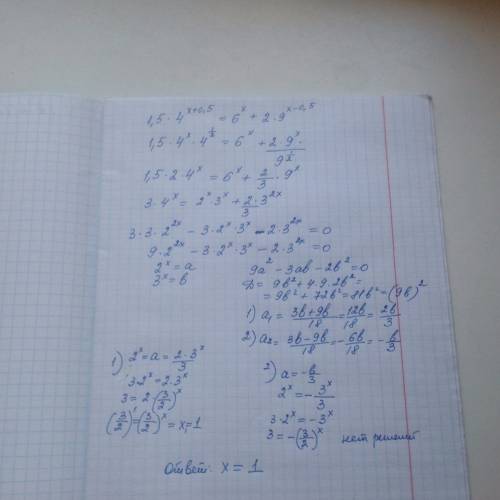 1,5 · 4^(x+0,5) = 6^x + 2 · 9^(x-0,5)
1,5 · 4^x · 4^(1/2) = 6^x + (2 · 9^x ·)/(9^(1/2))
1,5 · 2 · 4^x = 6^x + 2/3 · 9^x
3 · 4^x = 2^x · 3^x + 2/3 · 3^(2x)
3 · 3 · 2^(2x) - 3 · 2^x · 3^x - 2 · 3^(2x) = 0
9 · 2^(2x) - 3 · 2^x · 3^x - 2 · 3^(2x) = 0
2^x = a
3^x = b
9a^2 - 3ab - 2b^2 = 0
D = 9b^2 + 4 · 9 · 2b^2 =
= 9b^2 + 72b^2 = 81b^2 = (9b)^2
1) a₁ = (3b+9b)/18 = 12b/18 = 2b/3
2) a₂ = (3b-9b)/18 = -6b/18 = -b/3
1) 2^x = a = (2 · 3^x)/3
3 · 2^x = 2 · 3^x
3 = 2 · (3/2)^x
(3/2)^1 = (3/2)^x = x=1
2) a = -b/3
2^x = -3^x/3
3 · 2^x = -3^x
3 = -(3/2)^x нет решений
Ответ: x = 1